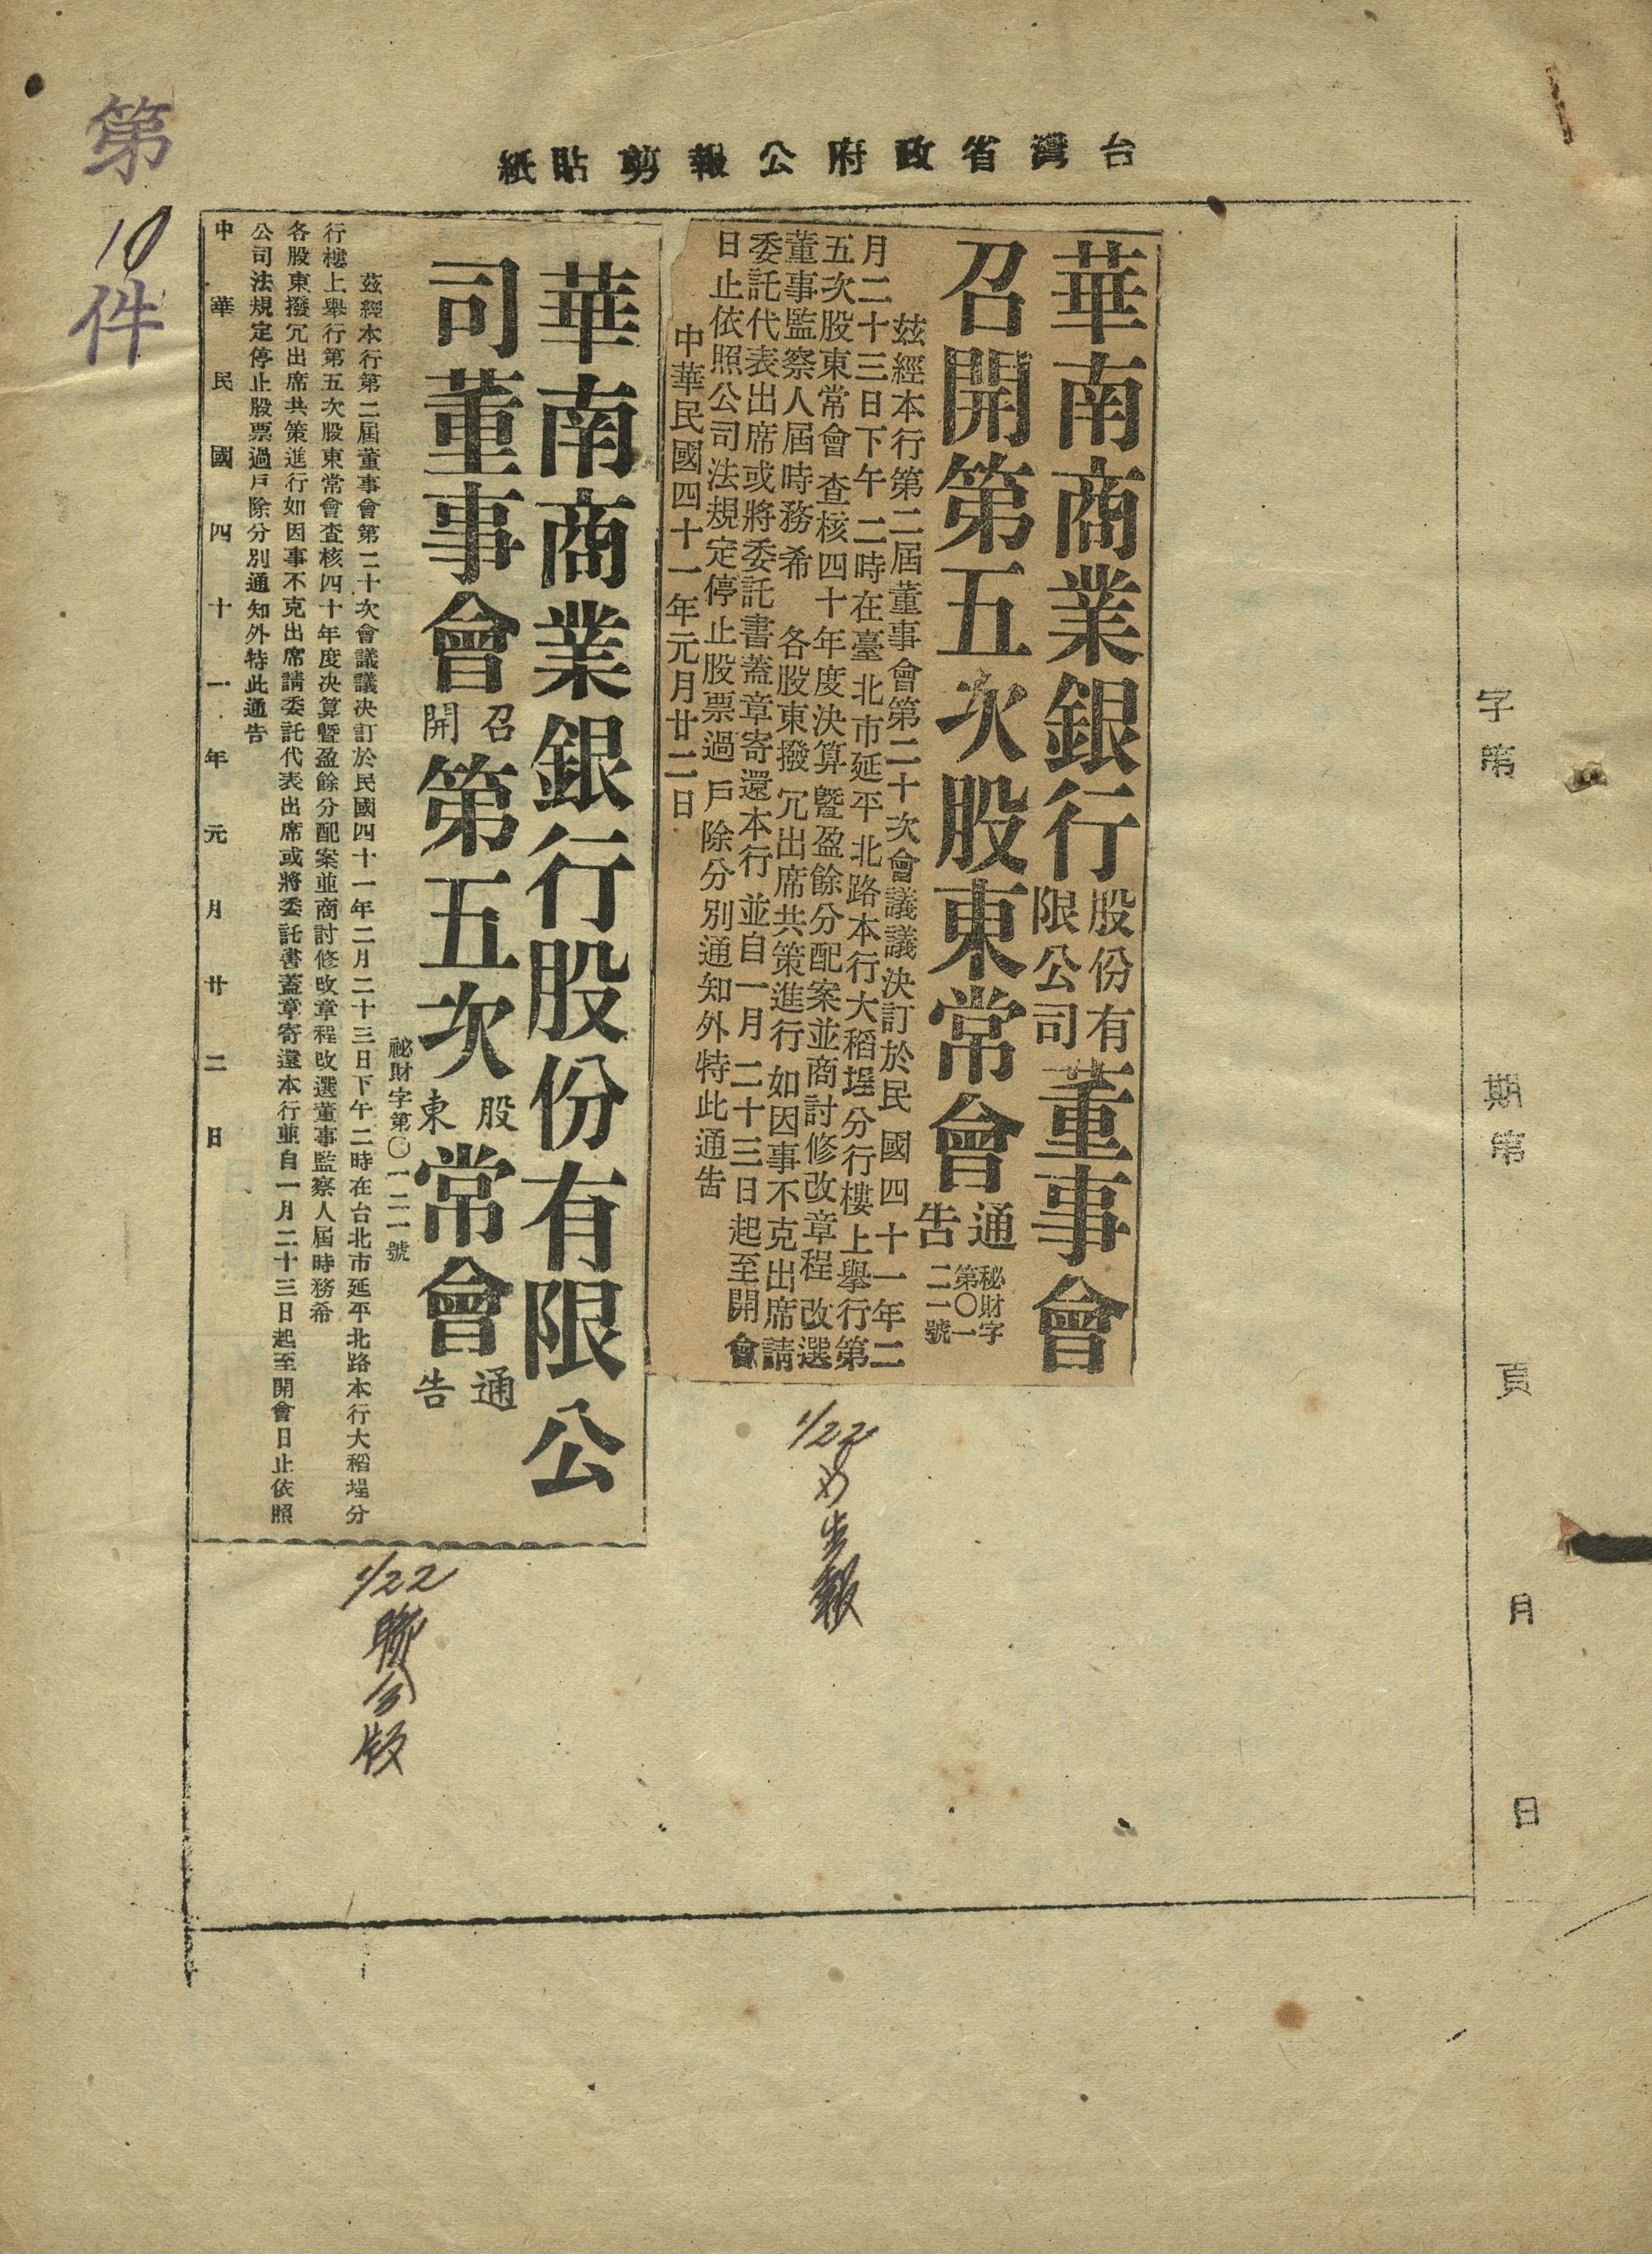 台灣省政府公報剪貼紙
字第
期第
頁
月
日
華南商業銀行股份有限公司董事會
召開第五次股東常會通告
秘財字第〇一二一號
茲經本行第二屆董事會第二十次會議議決訂於民國四十一年二
月二十三日下午二時在臺北市延平北路本行大稻埕分行樓上舉行第
五次股東常會查核四十年度決算暨盈餘分配案並商討修改章程改選
董事監察人屆時務希各股東撥冗出席共策進行如因事不克出席請
委託代表出席或將委託書蓋章寄還本行並自一月二十三日起至開會
日止依照公司法規定停止股票過戶除分別通知外特此通告
中華民國四十一年元月廿二日
1/22
報
華南商業銀行股份有限公
司董事會召開第五次股東常會通告
祕財字第〇一二一號
茲經本行第二屆董事會第二十次會議議決訂於民國四十一年二月二十三日下午二時在台北市延平北路本行大稻埕分
行樓上舉行第五次股東常會查核四十年度決算暨盈餘分配案並商討修改章程改選董事監察人屆時務希
各股東撥冗出席共策進行如因事不克出席請委託代表出席或將委託書蓋章寄還本行並自一月二十三日起至開會日止依照
公司法規定停止股票過戶除分別通知外特此通告
中華民國四十一年元月廿二日
1/22
聯合版
第10件